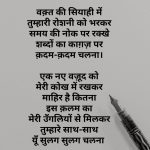 वक़्त की सियाही में
तुम्हारी रोशनी को भरकर
समय की नोक पर रक्खे
शब्दों का काग़ज़ पर
क़दम-क़दम चलना।
एक नए वज़ूद को
मेरी कोख में रखकर
माहिर है कितना
इस क़लम का
मेरी उँगलियों से मिलकर
तुम्हारे साथ-साथ
यूँ सुलग सुलग चलना